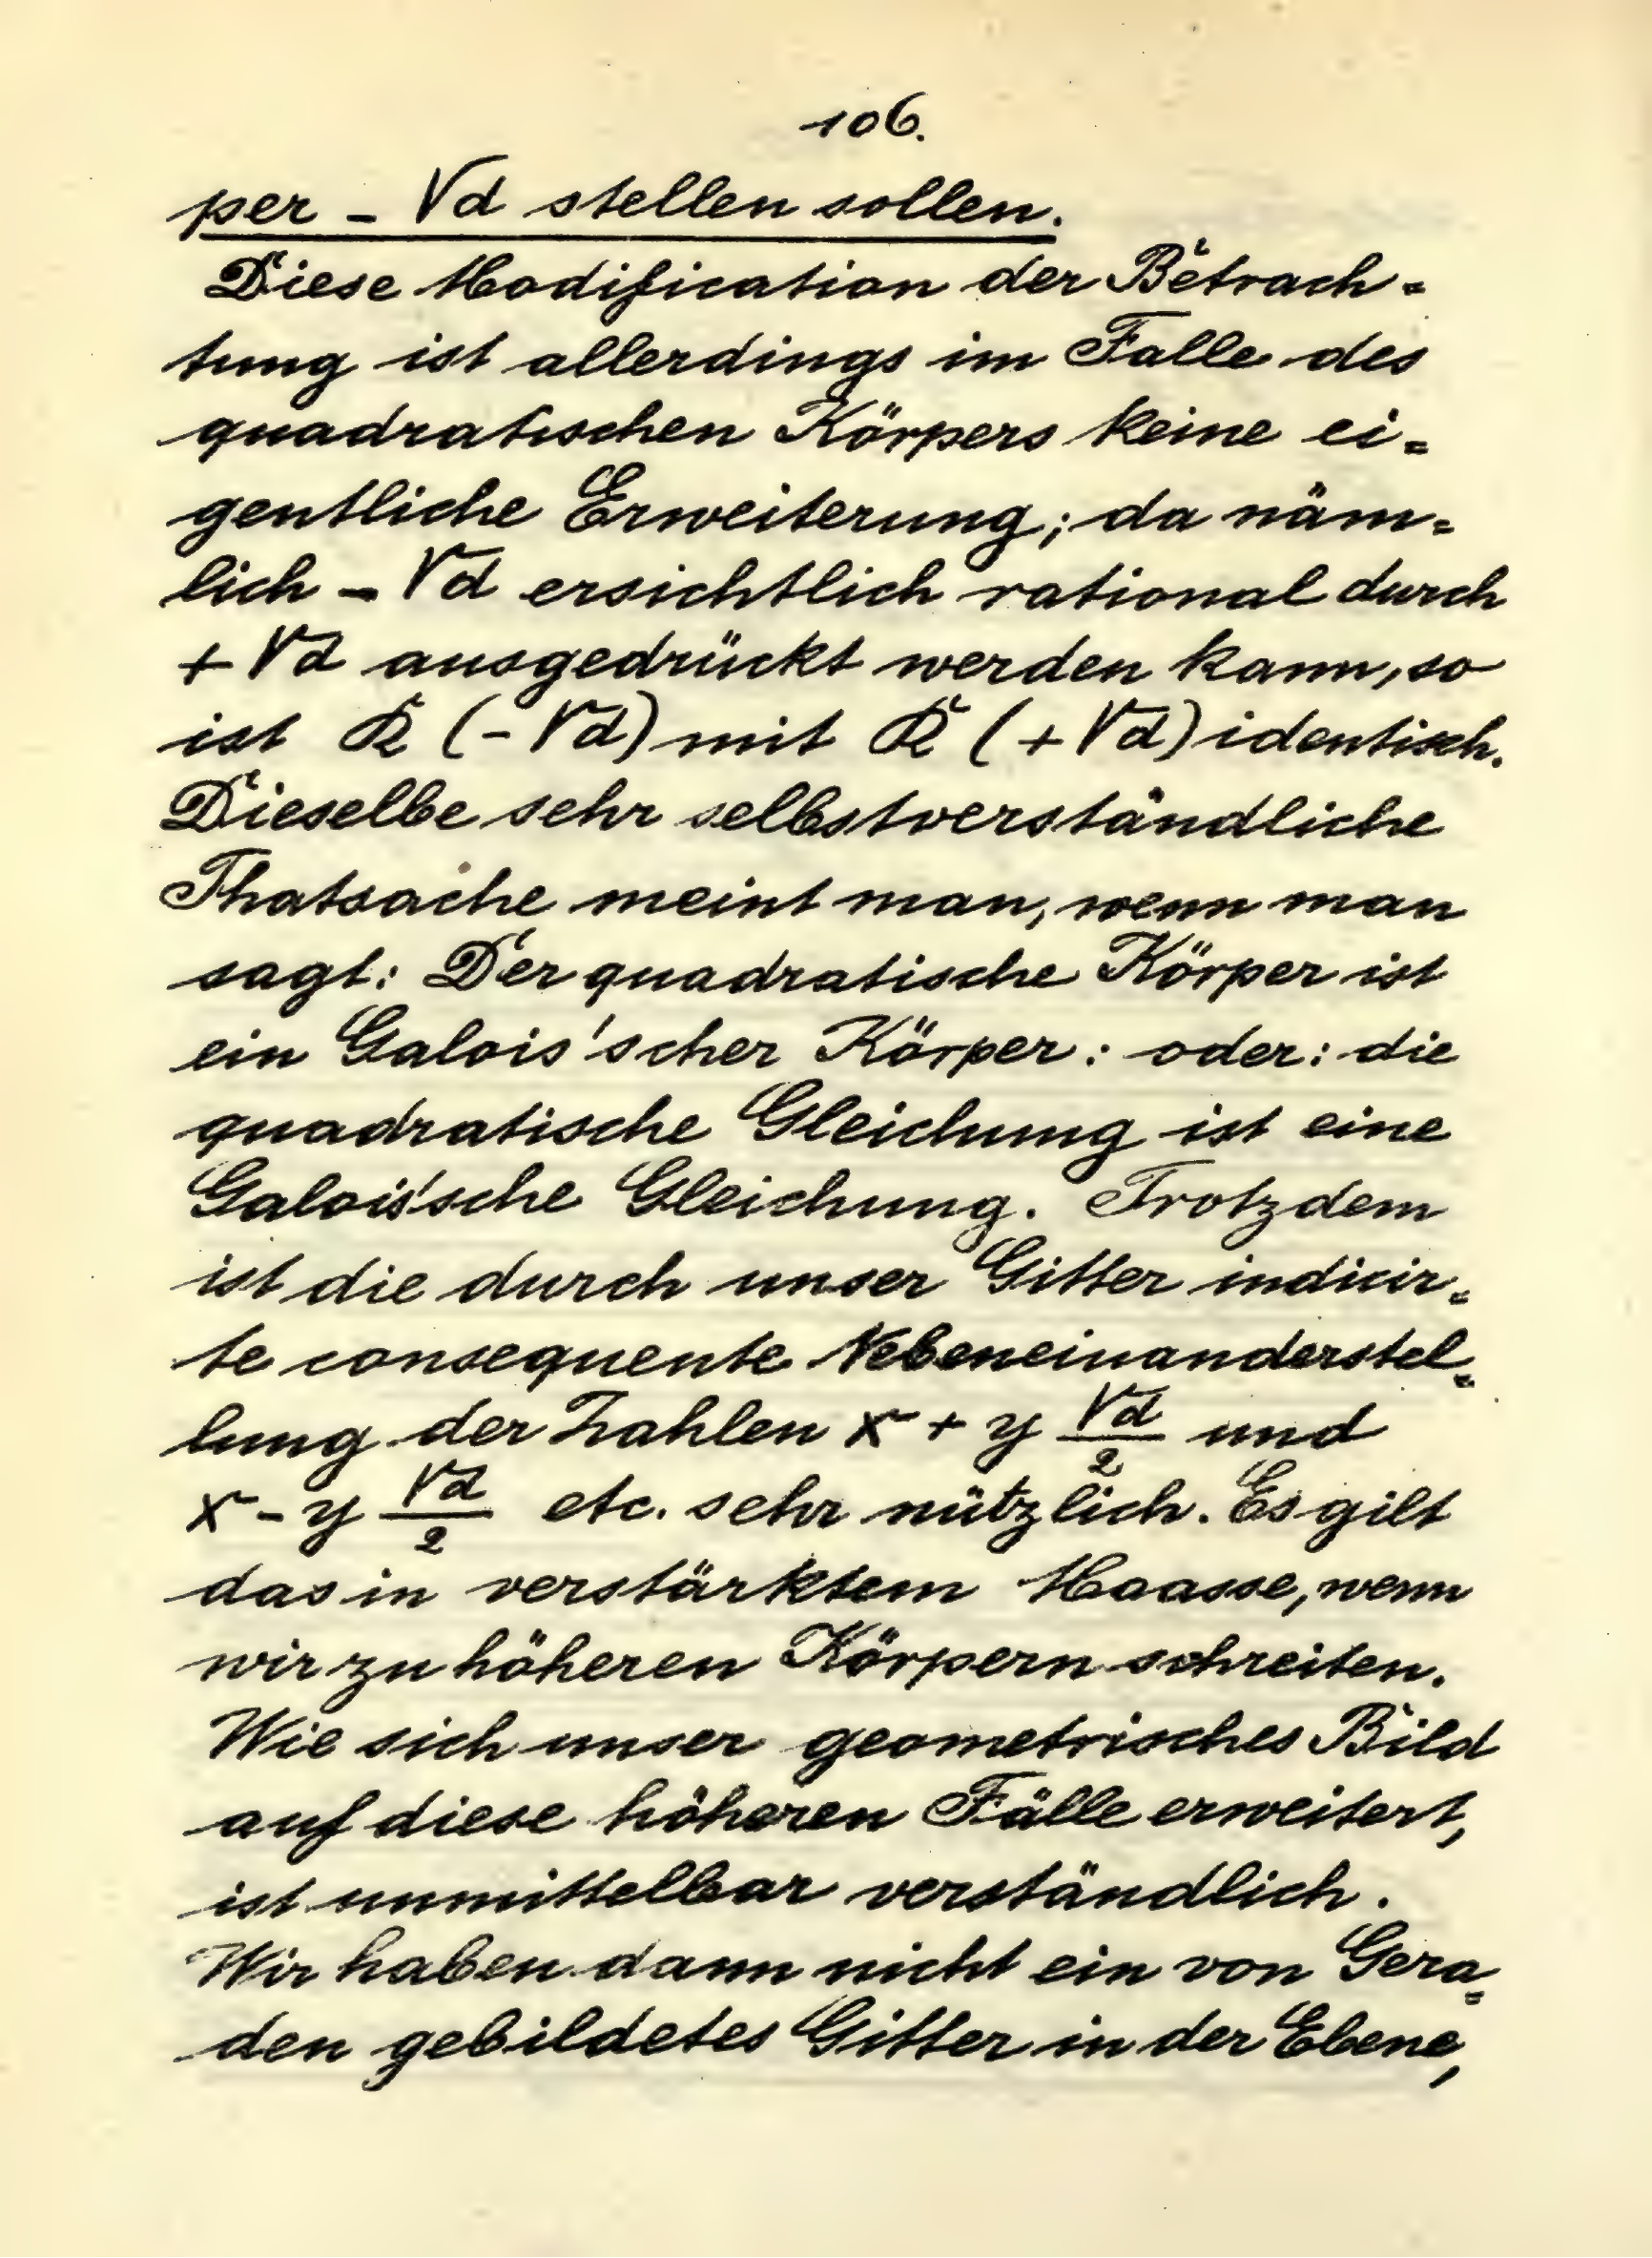 106.
per - √d stellen sollen.
Diese Modification der Betrach=
tung ist allerdings im Falle des
quadratischen Körpers keine ei=
gentliche Erweiterung; da näm=
lich - √d ersichtlich rational durch
+ √d ausgedrückt werden kann, so
ist K (- √d) mit K (+ √d) identisch.
Dieselbe sehr selbstverständliche
Thatsache meint man, wenn man
sagt: Der quadratische Körper ist
ein Galois'scher Körper: oder: die
quadratische Gleichung ist eine
Galois'sche Gleichung. Trotzdem
ist die durch unser Gitter indicir=
te consequente Nebeneinanderstel=
lung der Zahlen x + y √d/2 und
x - y √d/2 etc. sehr nützlich. Es gilt
das in verstärktem Maasse, wenn
wir zu höheren Körpern schreiten.
Wie sich unser geometrisches Bild
auf diese höheren Fälle erweitert,
ist unmittelbar verständlich.
Wir haben dann nicht ein von Gera=
den gebildetes Gitter in der Ebene,